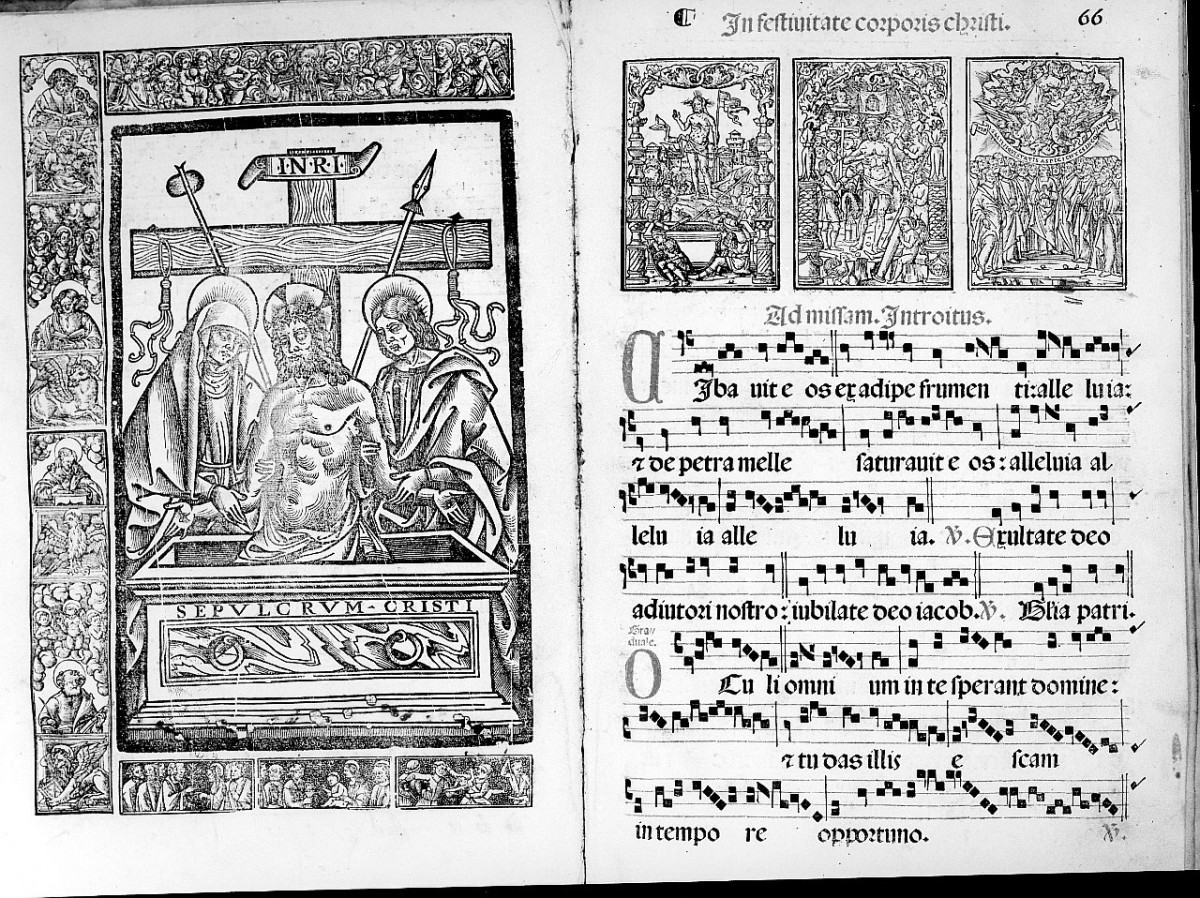 I·N·R·I·
SEPVLCRVM·CRISTI
In festiuitate corporis christi.
66
Ad missam. Introitus.
CIba uit e os ex adipe frumen ti: alle luia:
⁊ de petra melle saturauit e os: alleluia al
lelu ia alle lu ia. V. Exultate deo
adiutori nostro: iubilate deo iacob. V. Gl'ia patri.
Gra/
duale.
OCu li omni um in te sperant domine:
⁊ tu das illis e scam
in tempo re opportuno. V.